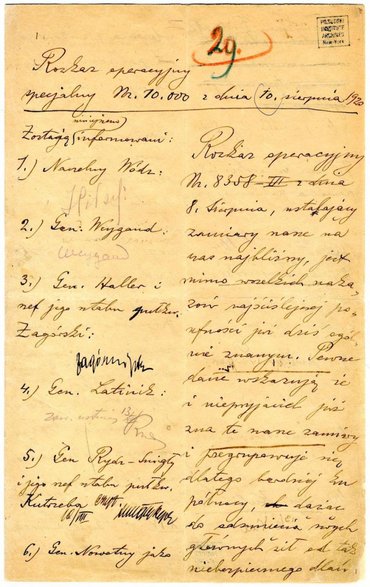 29.
PILSUDSKI
INSTITUTE
ARCHIVES
New-York
Rozkaz operacyjny
specjalny Nr. 10.000 z dnia 10. sierpnia 1920
Zostają
informowani:
1.) Naczelny Wódz:
2.) Gen. Weygand:
Weygand
3.) Gen. Haller i
szef jego sztabu pułkow.
Zagórski:
Zagórski
4.) Gen. Latinik:
5.) Gen Rydz-Śmigły
i jego szef sztabu pułk.
Kutrzeba
6.) Gen. Nowotny jako
Rozkaz operacyjny
Nr. 8358-III z dnia
8. Sierpnia, ustalający
zamiary nasze na
czas najbliższy, jest
mimo wszelkich naka-
zów najściślejszej po-
ufności już dziś ogól-
nie znanym. Pewne
dane wskazują, że
i nieprzyjaciel już
zna te nasze zamiary
i przegrupowuje się
dlatego bardziej ku
północy, dążąc
do odsunięcia swoich
głównych sił od tak
niebezpiecznego dla